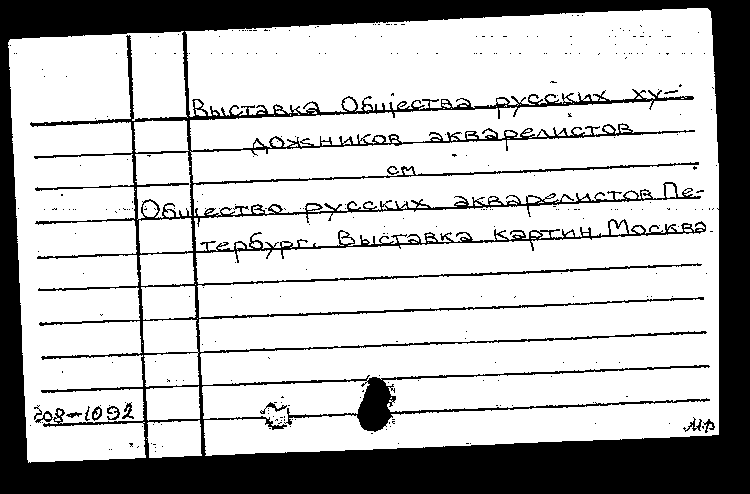 Выставка Общества русских ху-
дожников акварелистов
см
Общество русских акварелистов Пе-
тербург. Выставка картин. Москва.
208-1092
М.Ф